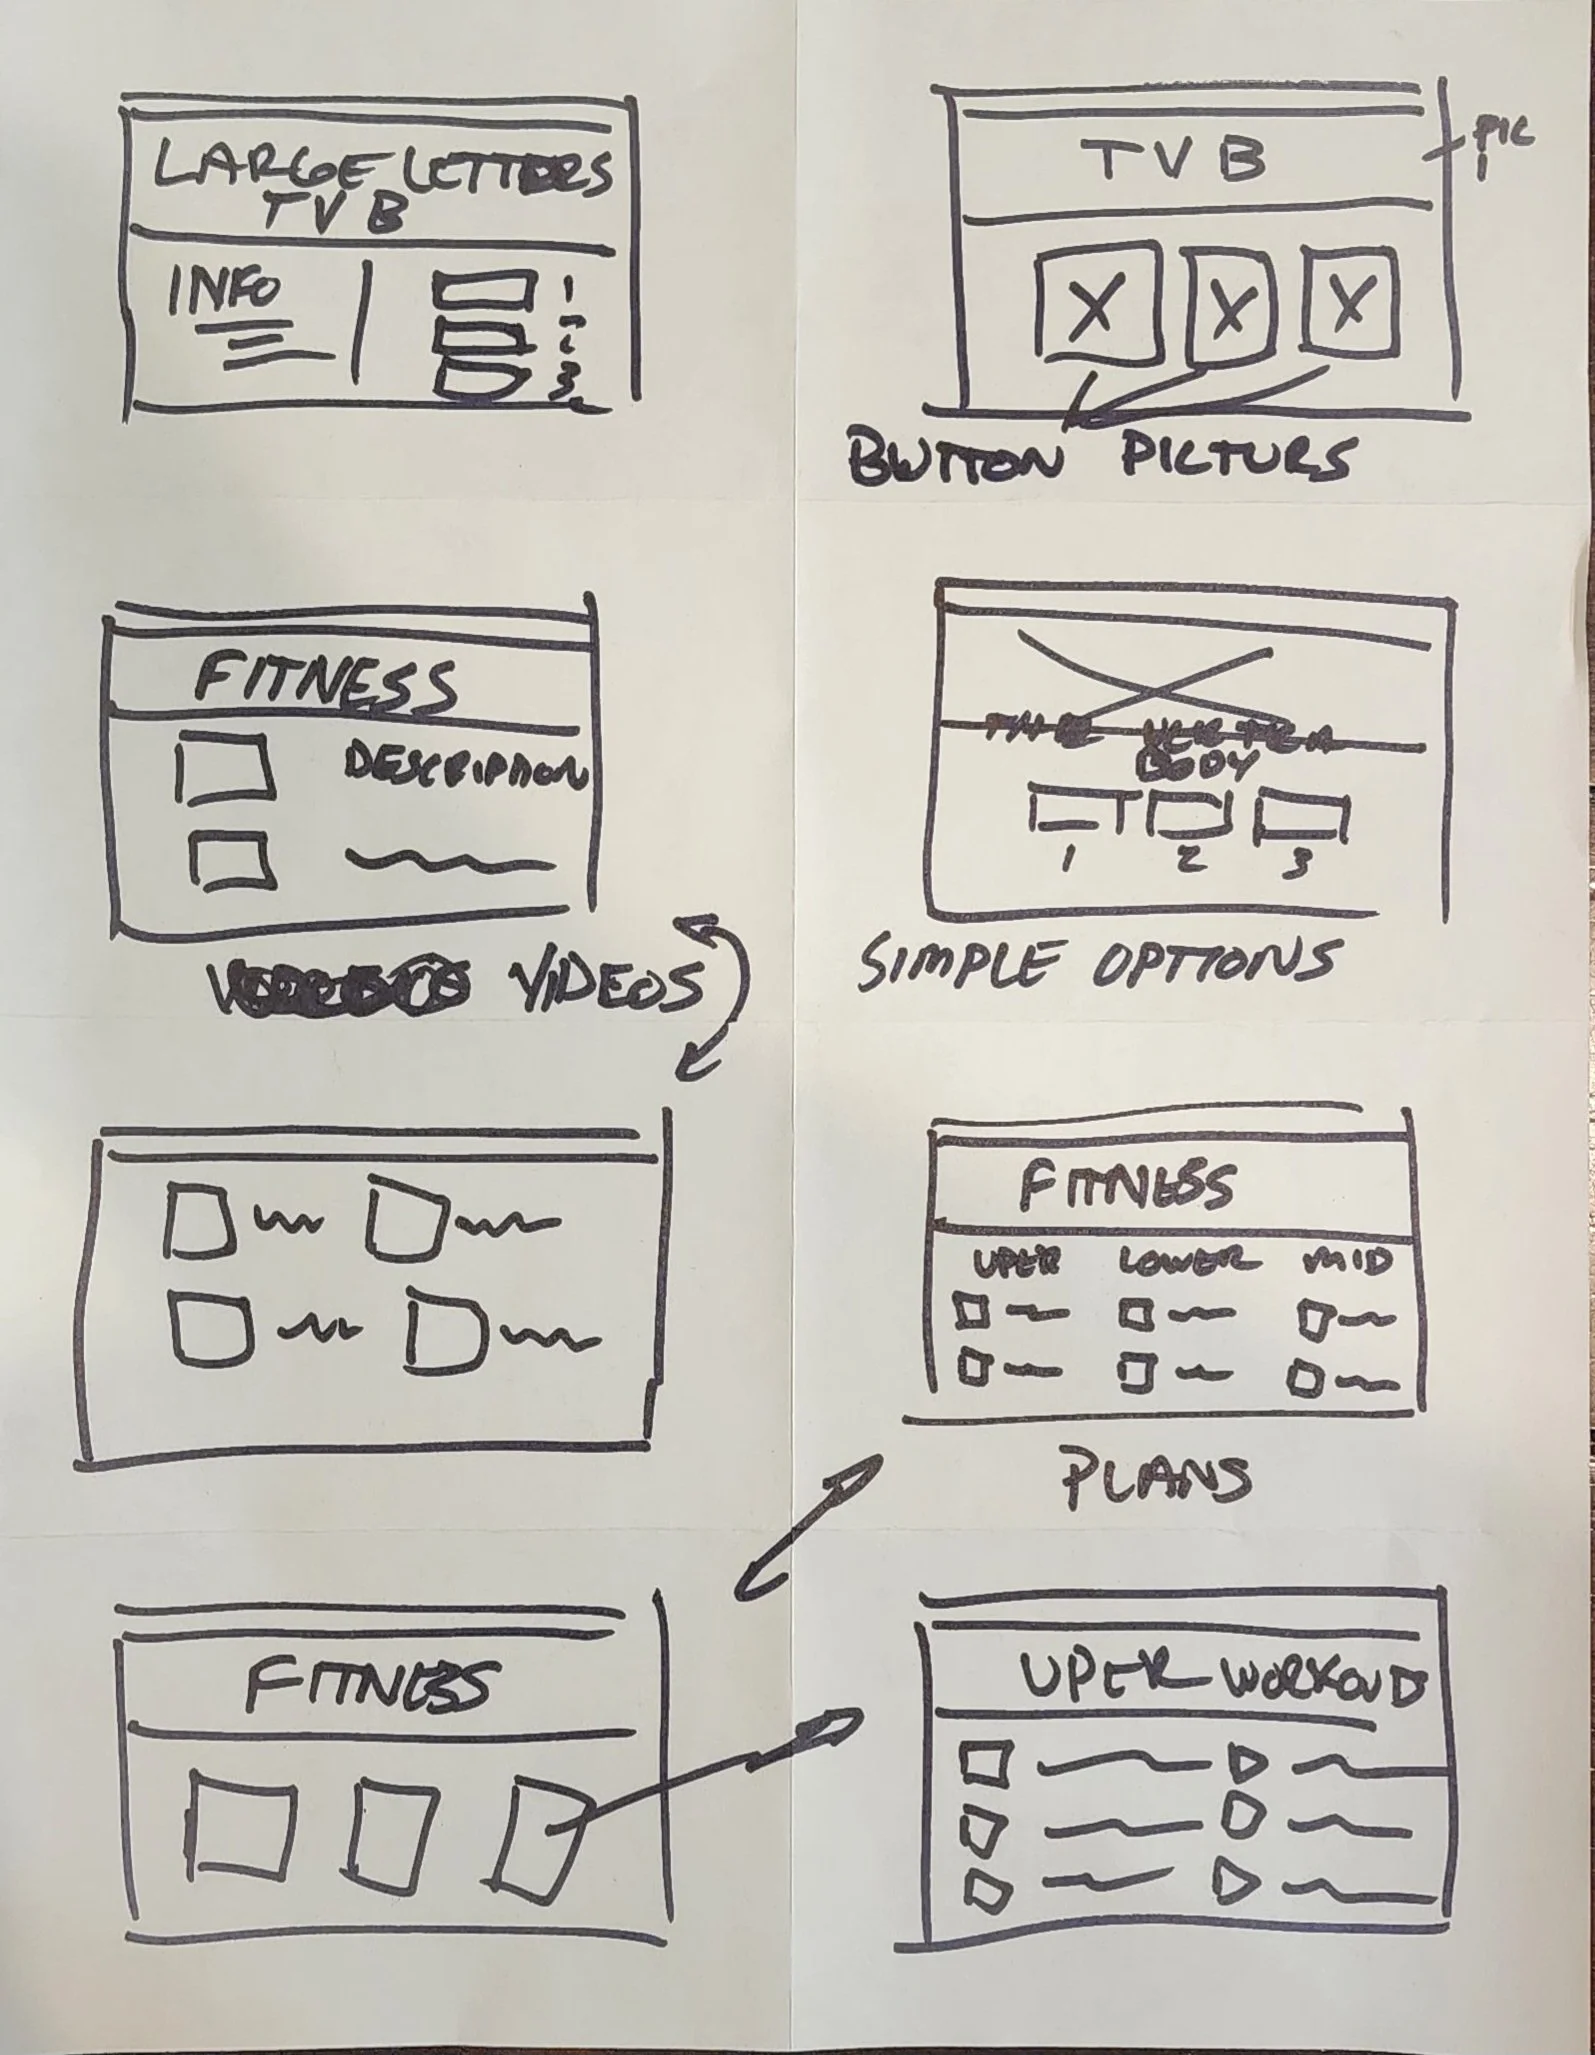 LARGE LETTERS
TVB
INFO
1
2
3
TVB
PIC
1
BUTTON PICTURS
FITNESS
DESCRIPTION
VIDEOS
BODY
1 2 3
SIMPLE OPTIONS
FITNESS
UPER LOWER MID
PLANS
FITNESS
UPER WORKOUT